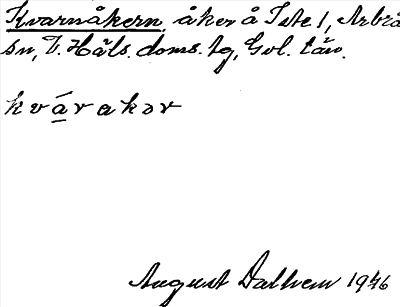 Kvarnåkern, åker å Tete 1, Arbrå
sn, V. Häls. doms. tg, Gvl. län.
kvárakər
August Dalhem 1946